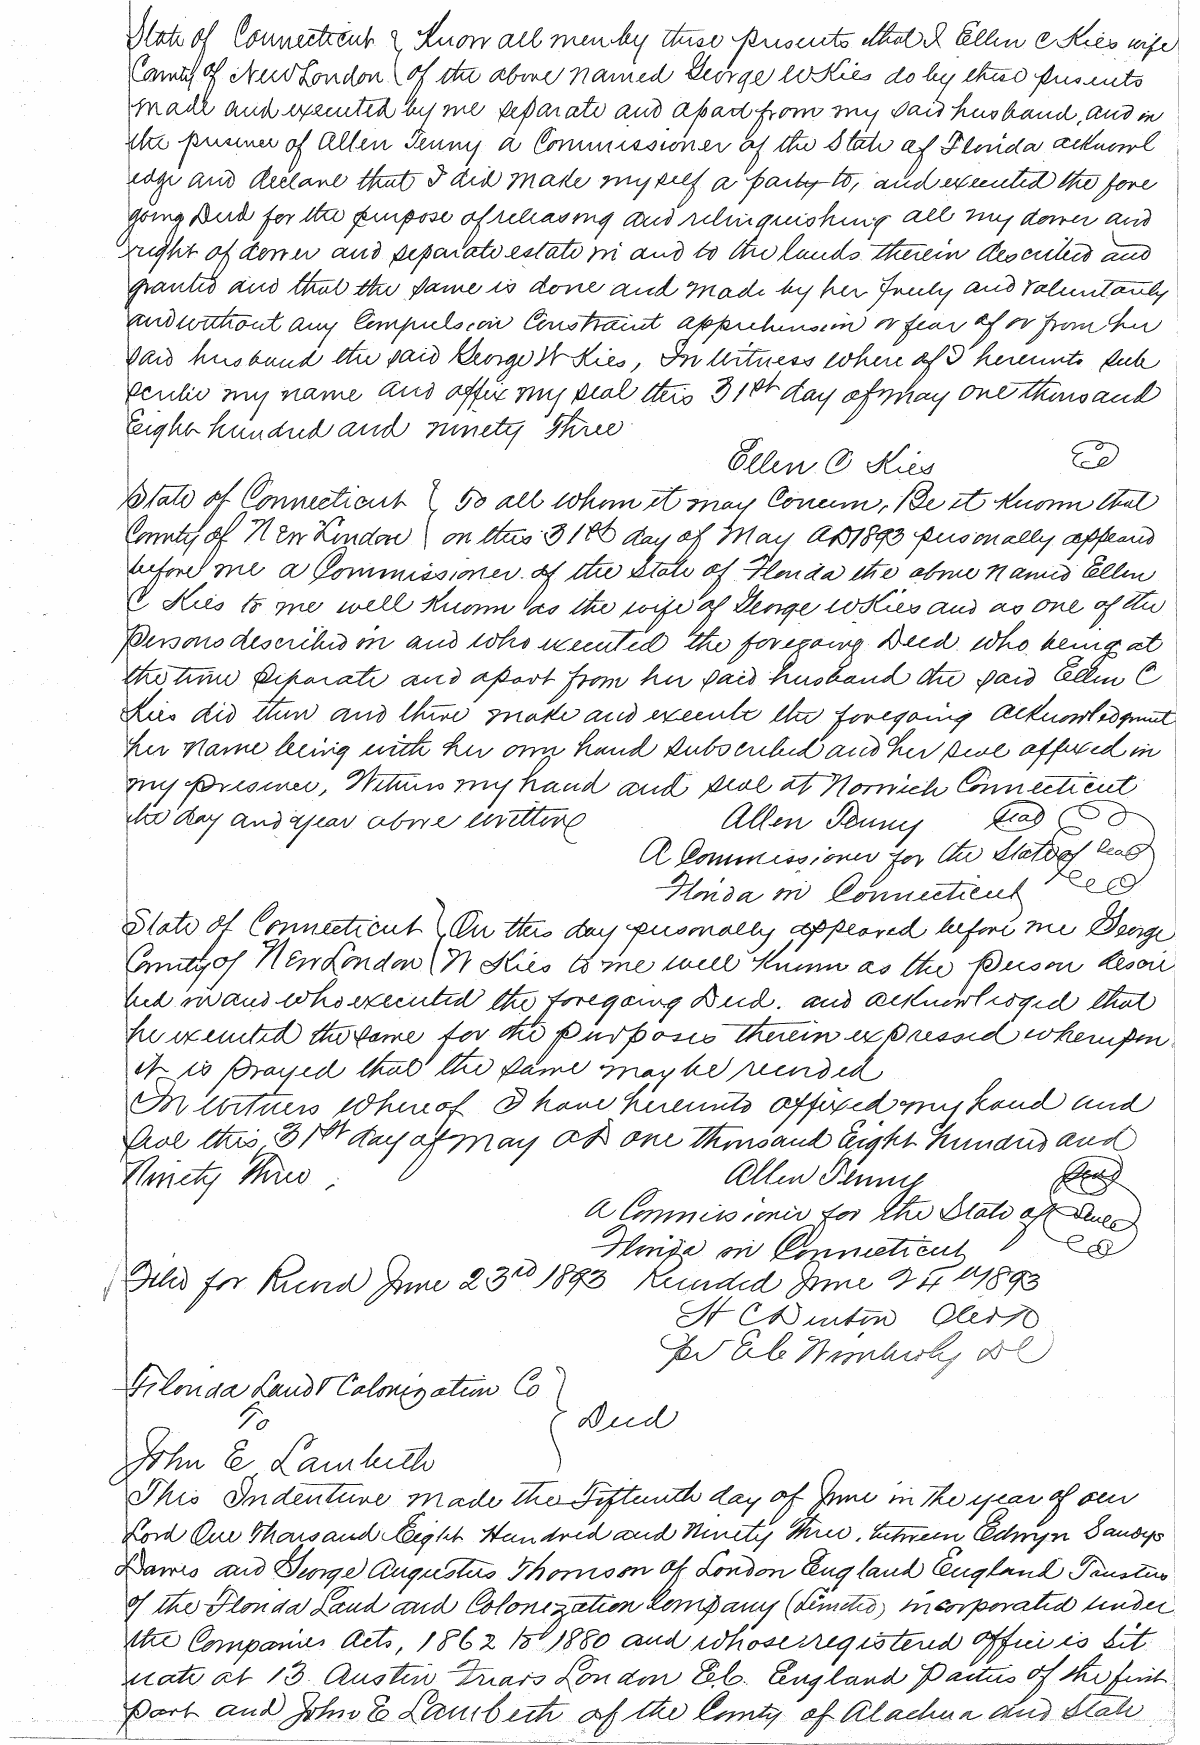 State of Connecticut } Know all men by these presents that I Ellen C Kies wife
County of New London } of the above named George W Kies do by these presents
made and executed by me separate and apart from my said husband, and in
the presence of Allen Tenny a Commissioner of the State of Florida acknowl
edge and declare that I did make myself a party to, and executed the fore
going Deed for the purpose of releasing and relinquishing all my dower and
right of dower and separate estate in and to the lands therein described and
granted and that the same is done and made by her freely and voluntarily
and without any Compulsion Constraint apprehension or fear of or from her
said husband the said George W Kies, In Witness where of I hereunto sub
scribe my name and affix my seal this 31st day of May one thousand
Eight hundred and ninety Three
Ellen C Kies
State of Connecticut } To all whom it may Concern, Be it Known that
County of New London } on this 31st day of May AD 1893 personally appeared
before me a Commissioner of the State of Florida the above Named Ellen
C Kies to me well Known as the wife of George W Kies and as one of the
Persons described in and who executed the foregoing Deed who being at
the time separate and apart from her said husband the said Ellen C
Kies did then and there make and execute the foregoing acknowledgment
her name being with her own hand subscribed and her seal affixed in
my presence, Witness my hand and seal at Norwich Connecticut
the day and year above written
Allen Tenny seal
A Commissioner for the State of seal
Florida in Connecticut
State of Connecticut } On this day personally appeared before me George
County of New London } W Kies to me well Known as the Person descri
bed in and who executed the foregoing Deed. and acknowledged that
he executed the same for the purposes therein expressed whereupon
it is prayed that the same may be recorded
In Witness Whereof I have hereunto affixed my hand and
seal this 31st day of May AD one thousand Eight hundred and
Ninety Three
Allen Tenny seal
A Commissioner for the State of seal
Florida in Connecticut
Filed for Record June 23rd 1893 Recorded June 24th 1893
H C Denton Clerk
Pr E C Wimberly DC
Florida Land & Colonization Co
To } Deed
John E Lambeth
This Indenture made the Fifteenth day of June in the year of our
Lord One Thousand Eight Hundred and Ninety Three. between Edwyn Sandys
Dawes and George Augustus Thomson of London England England Trustees
of the Florida Land and Colonization Company (Limited) incorporated under
the Companies Acts, 1862 to 1880 and whose registered office is sit
uate at 13 Austin Friars London E.C. England Parties of the first
part and John E Lambeth of the County of Alachua and State